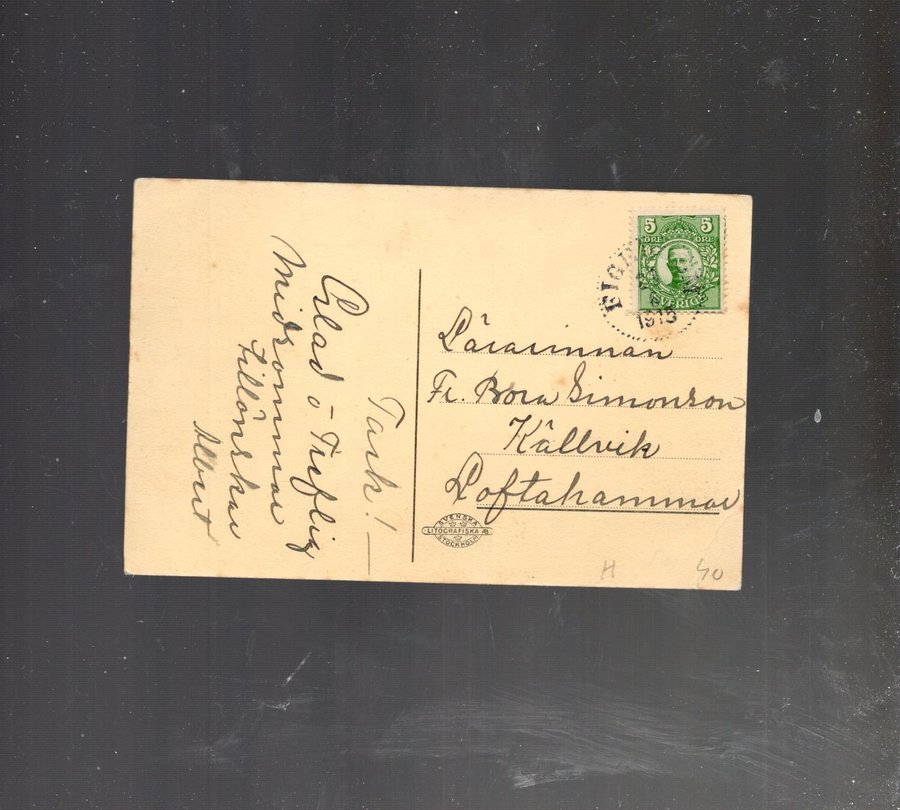 Tack!
Glad o Treflig
Midsommar
Tillönskar
Albert
5 5
ÖRE ÖRE
SVERIGE
1915
Lärarinnan
Fr. Bora Simonson
Källvik
Loftahammar
SVENSKA
LITOGRAFISKA AB
STOCKHOLM
H 40